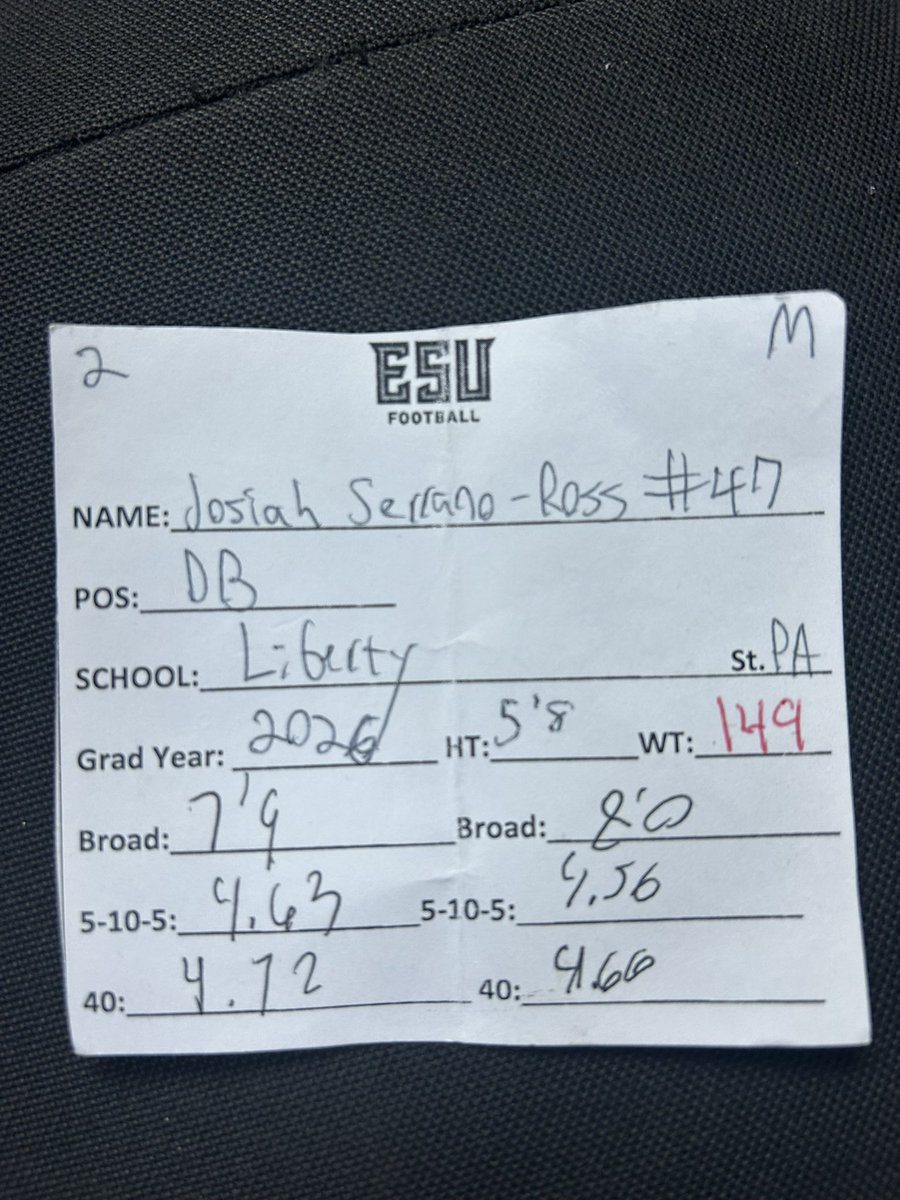 2 M
ESU
FOOTBALL
NAME: Josiah Serrano-Ross #47
POS: DB
SCHOOL: Liberty St. PA
Grad Year: 2026 HT: 5'8 WT: 149
Broad: 7'9 Broad: 8'0
5-10-5: 4.63 5-10-5: 4.56
40: 4.72 40: 4.66